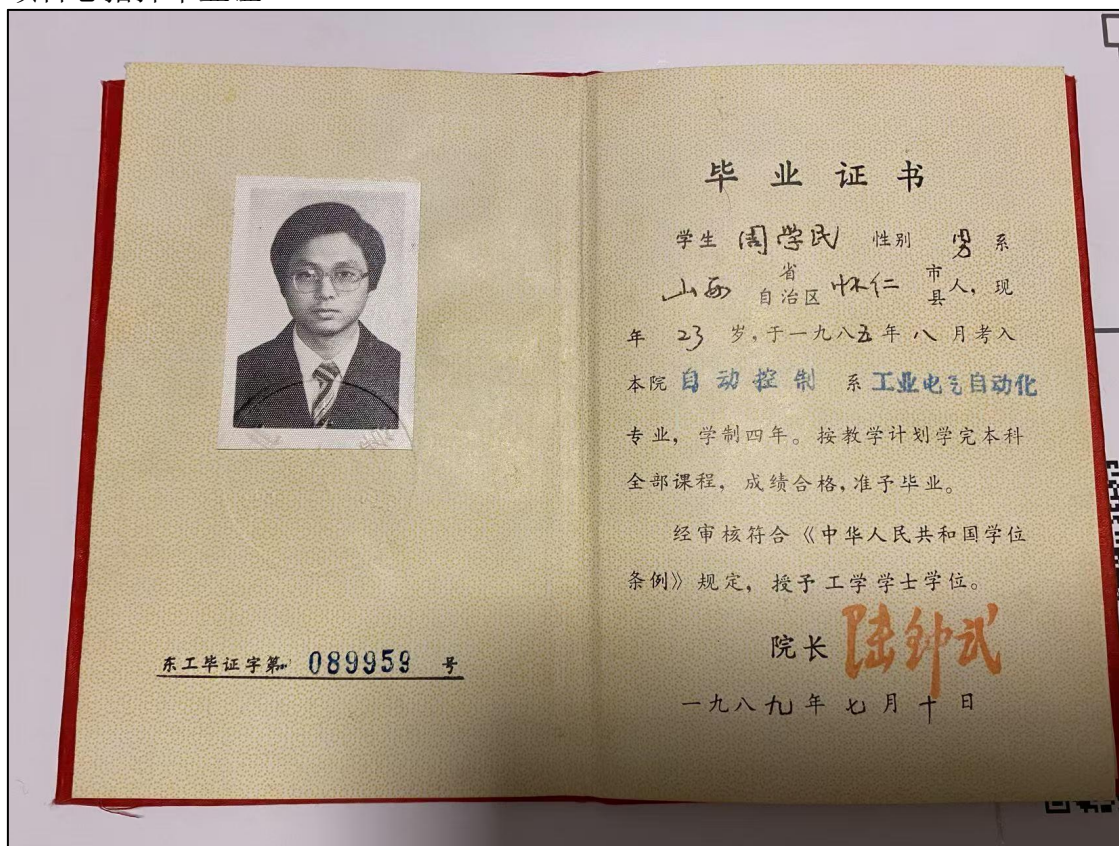 东工毕证字第 089959 号
毕业证书
学生 周学民 性别 男 系
山西 省 自治区 怀仁 市 县 人，现
年 23 岁，于一九八五年 八 月考入
本院 自动控制 系 工业电气自动化
专业，学制四年。按教学计划学完本科
全部课程，成绩合格，准予毕业。
经审核符合《中华人民共和国学位
条例》规定，授予工学学士学位。
院长 陆钟武
一九八九年 七 月 十 日